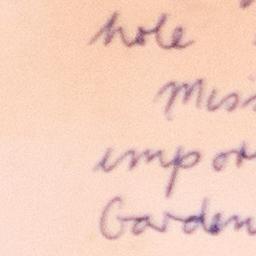 hole
Miss
impor
Garden